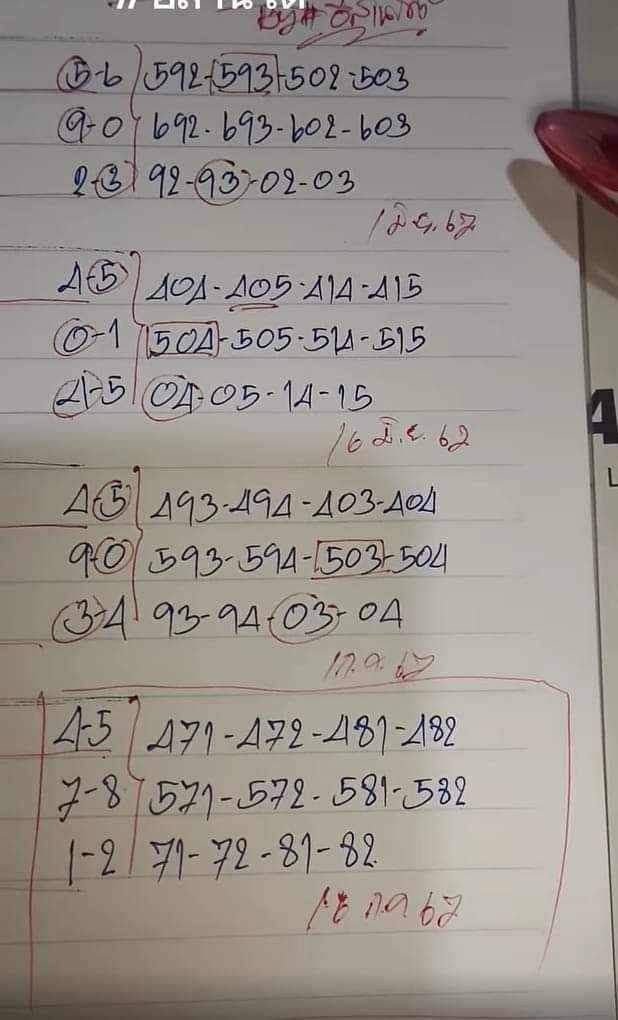 5-6 592-593-502-503
9-0 692-693-602-603
2-3 92-93-02-03
1 มิ.ย. 67
4-5 404-405-414-415
0-1 504-505-514-515
4-5 04-05-14-15
16 มิ.ย. 67
4-5 493-494-403-404
9-0 593-594-503-504
3-4 93-94-03-04
1 ก.ค. 67
4-5 471-472-481-482
7-8 571-572-581-582
1-2 71-72-81-82
16 ก.ค 67